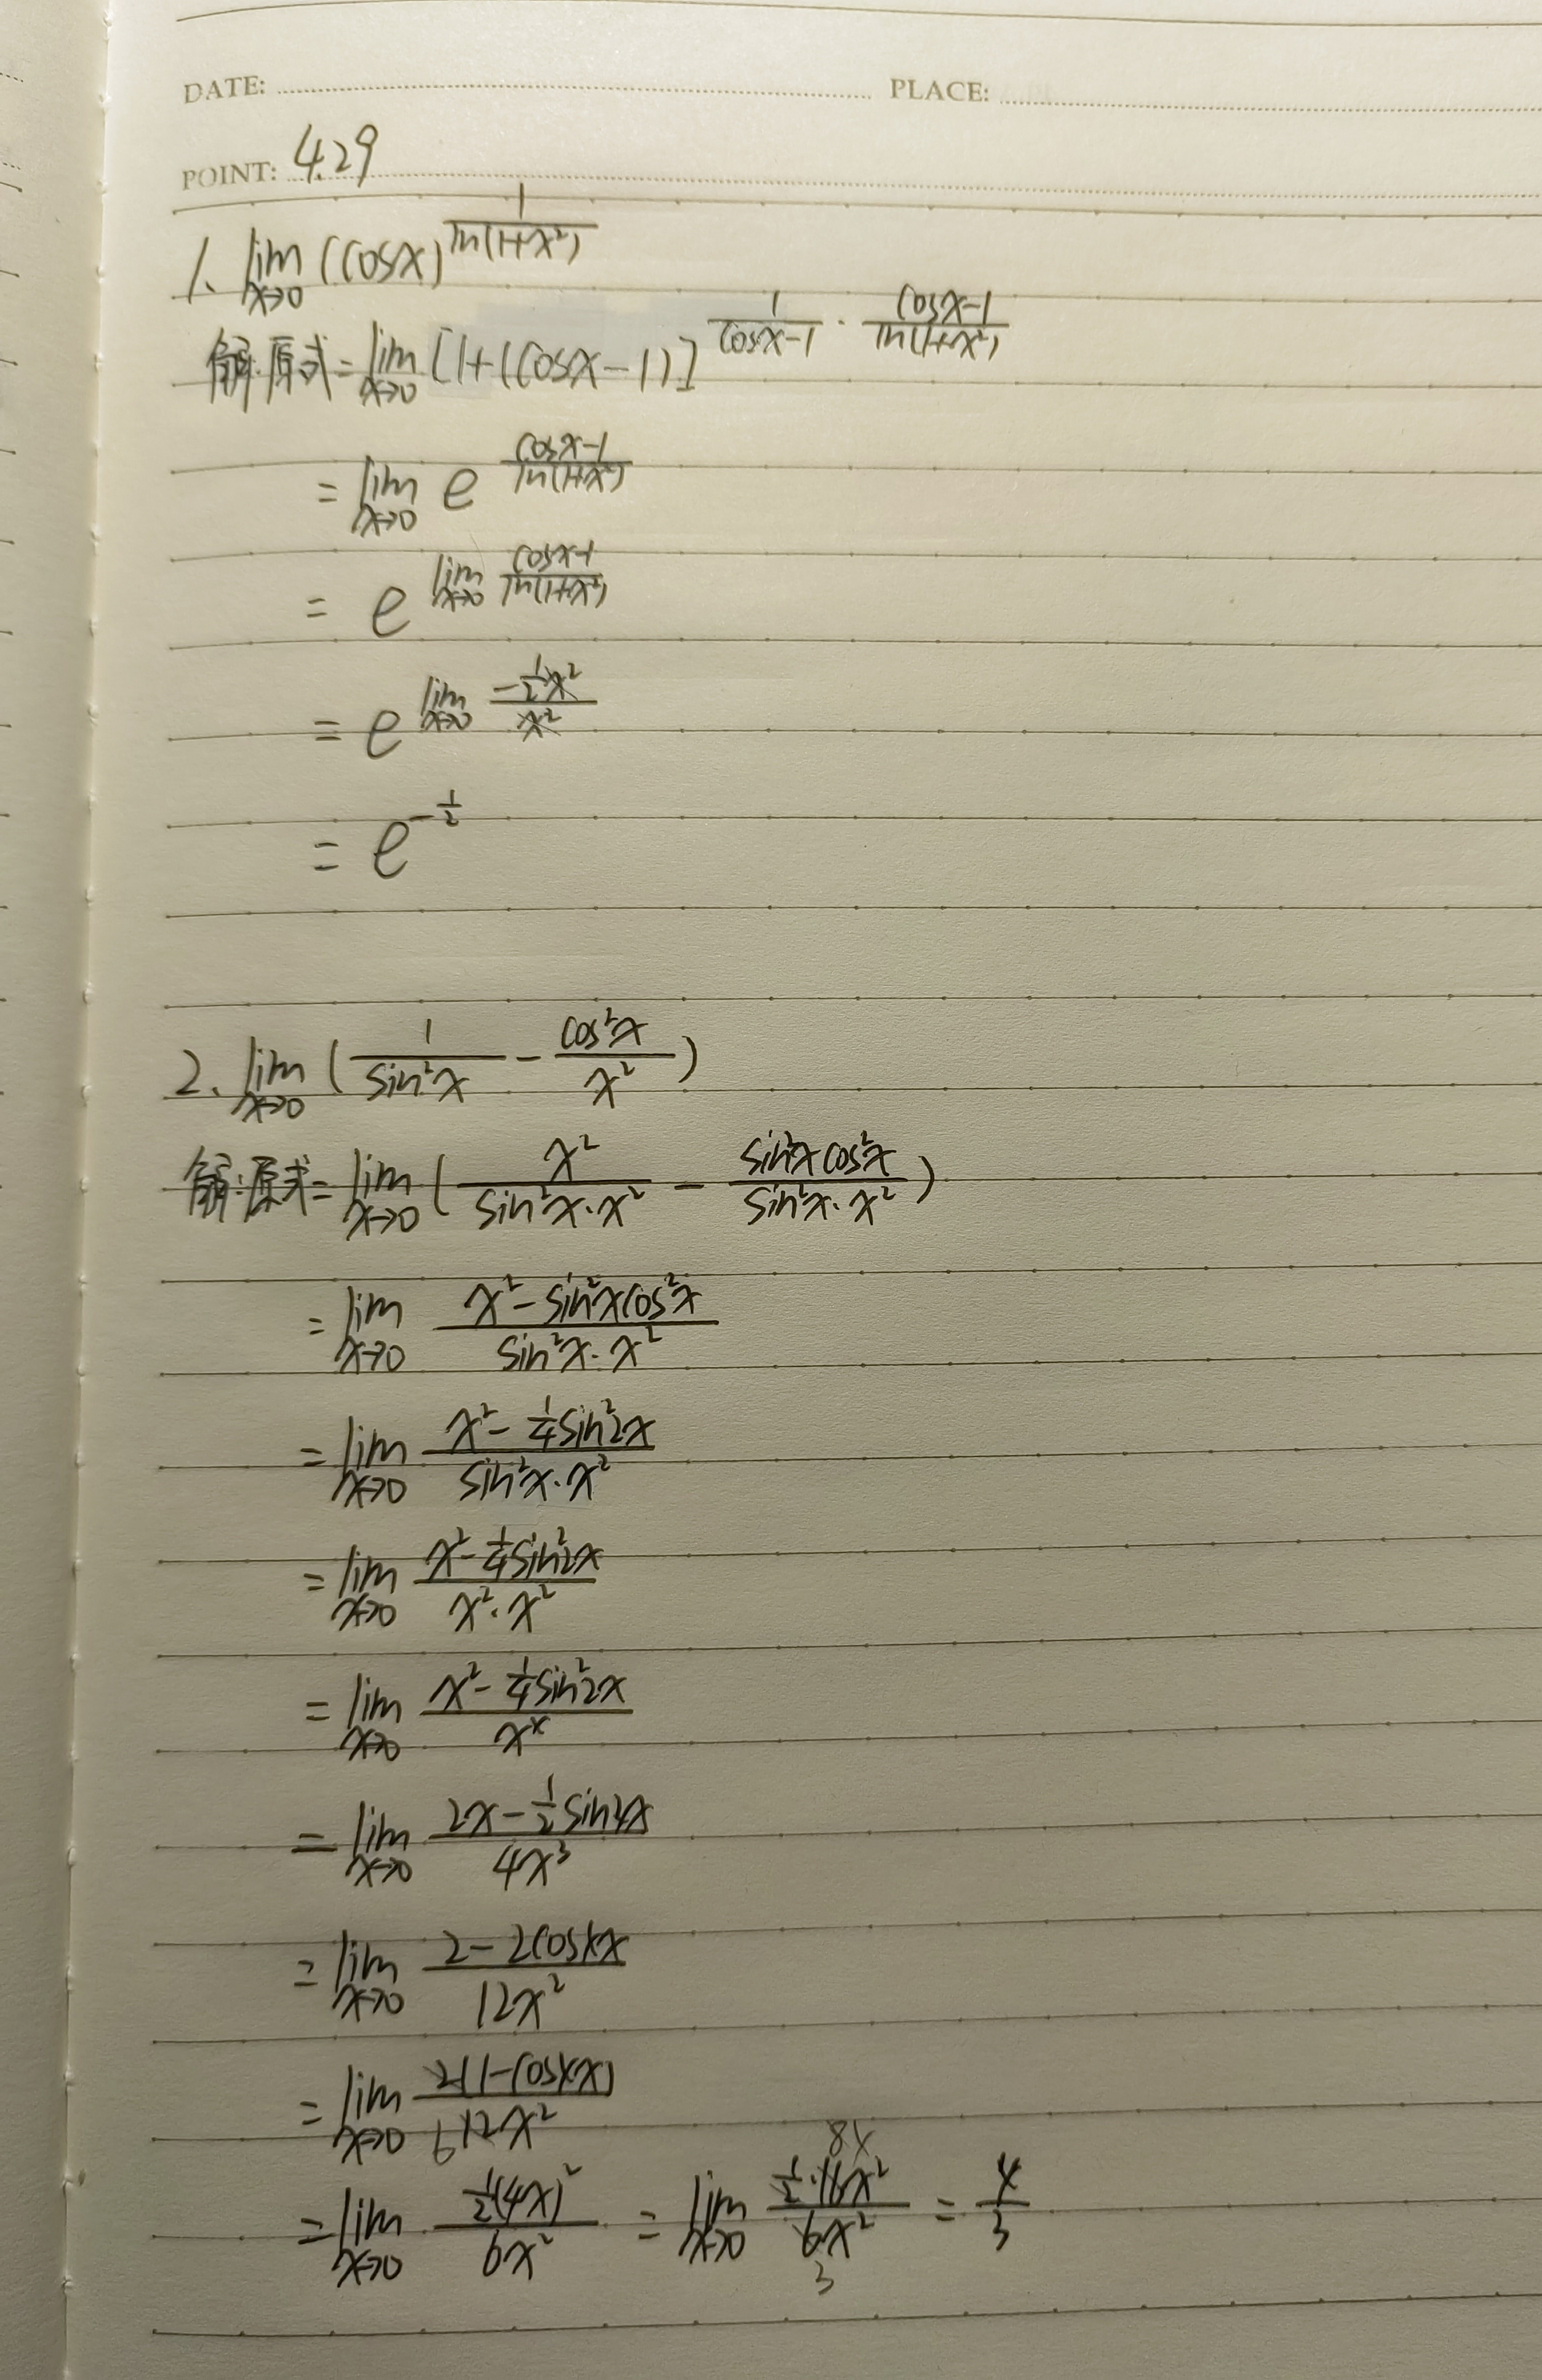 DATE: PLACE:
POINT: 4.29
1. lim x→0 (cosx)^(1/ln(1+x²))
解:原式= lim x→0 [1+(cosx-1)]^(1/(cosx-1) · (cosx-1)/ln(1+x²))
= lim x→0 e^((cosx-1)/ln(1+x²))
= e^(lim x→0 (cosx-1)/ln(1+x²))
= e^(lim x→0 (-½x²)/x²)
= e^(-½)
2. lim x→0 (1/sin²x - cos²x/x²)
解:原式= lim x→0 (x²/(sin²x·x²) - sin²xcos²x/(sin²x·x²))
= lim x→0 (x²-sin²xcos²x)/(sin²x·x²)
= lim x→0 (x²-¼sin²2x)/(sin²x·x²)
= lim x→0 (x²-¼sin²2x)/(x²·x²)
= lim x→0 (x²-¼sin²2x)/x⁴
= lim x→0 (2x-½sin4x)/4x³
= lim x→0 (2-2cos4x)/12x²
= lim x→0 2(1-cos4x)/12x² 6
= lim x→0 ½(4x)²/6x² = lim x→0 ½·16x²/6x² 3 = 4/3